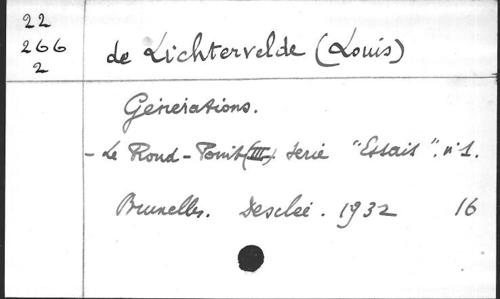 22
266
2
de Lichtervelde (Louis)
Générations.
- Le Rond-Point (III). Serie "Essais". n°1.
Bruxelles. Desclée. 1932 16